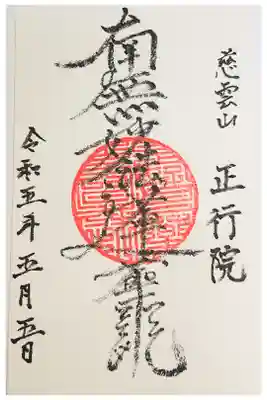 慈雲山
正行院
南無妙法蓮華経
令和五年五月五日